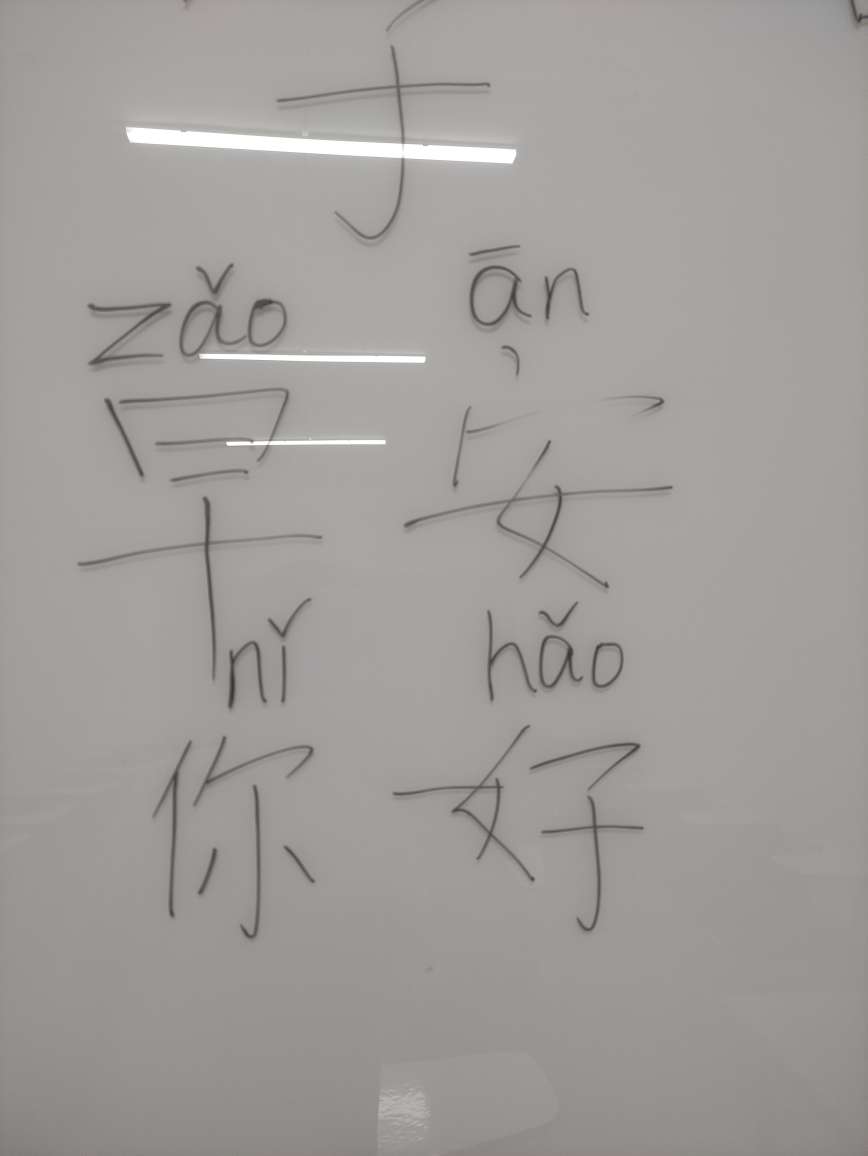 子
zǎo ān
早安
nǐ hǎo
你好